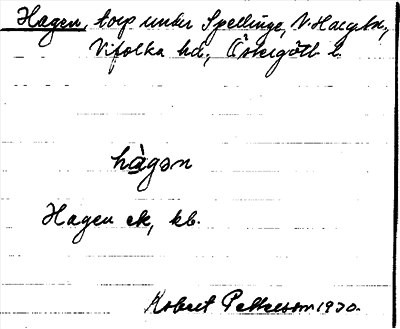 Hagen, torp under Spellinge, V. Harg sn,
Vifolka hd, Östergötl. l.
hàgən
Hagen ek, kb.
Robert Pettersson 1930.